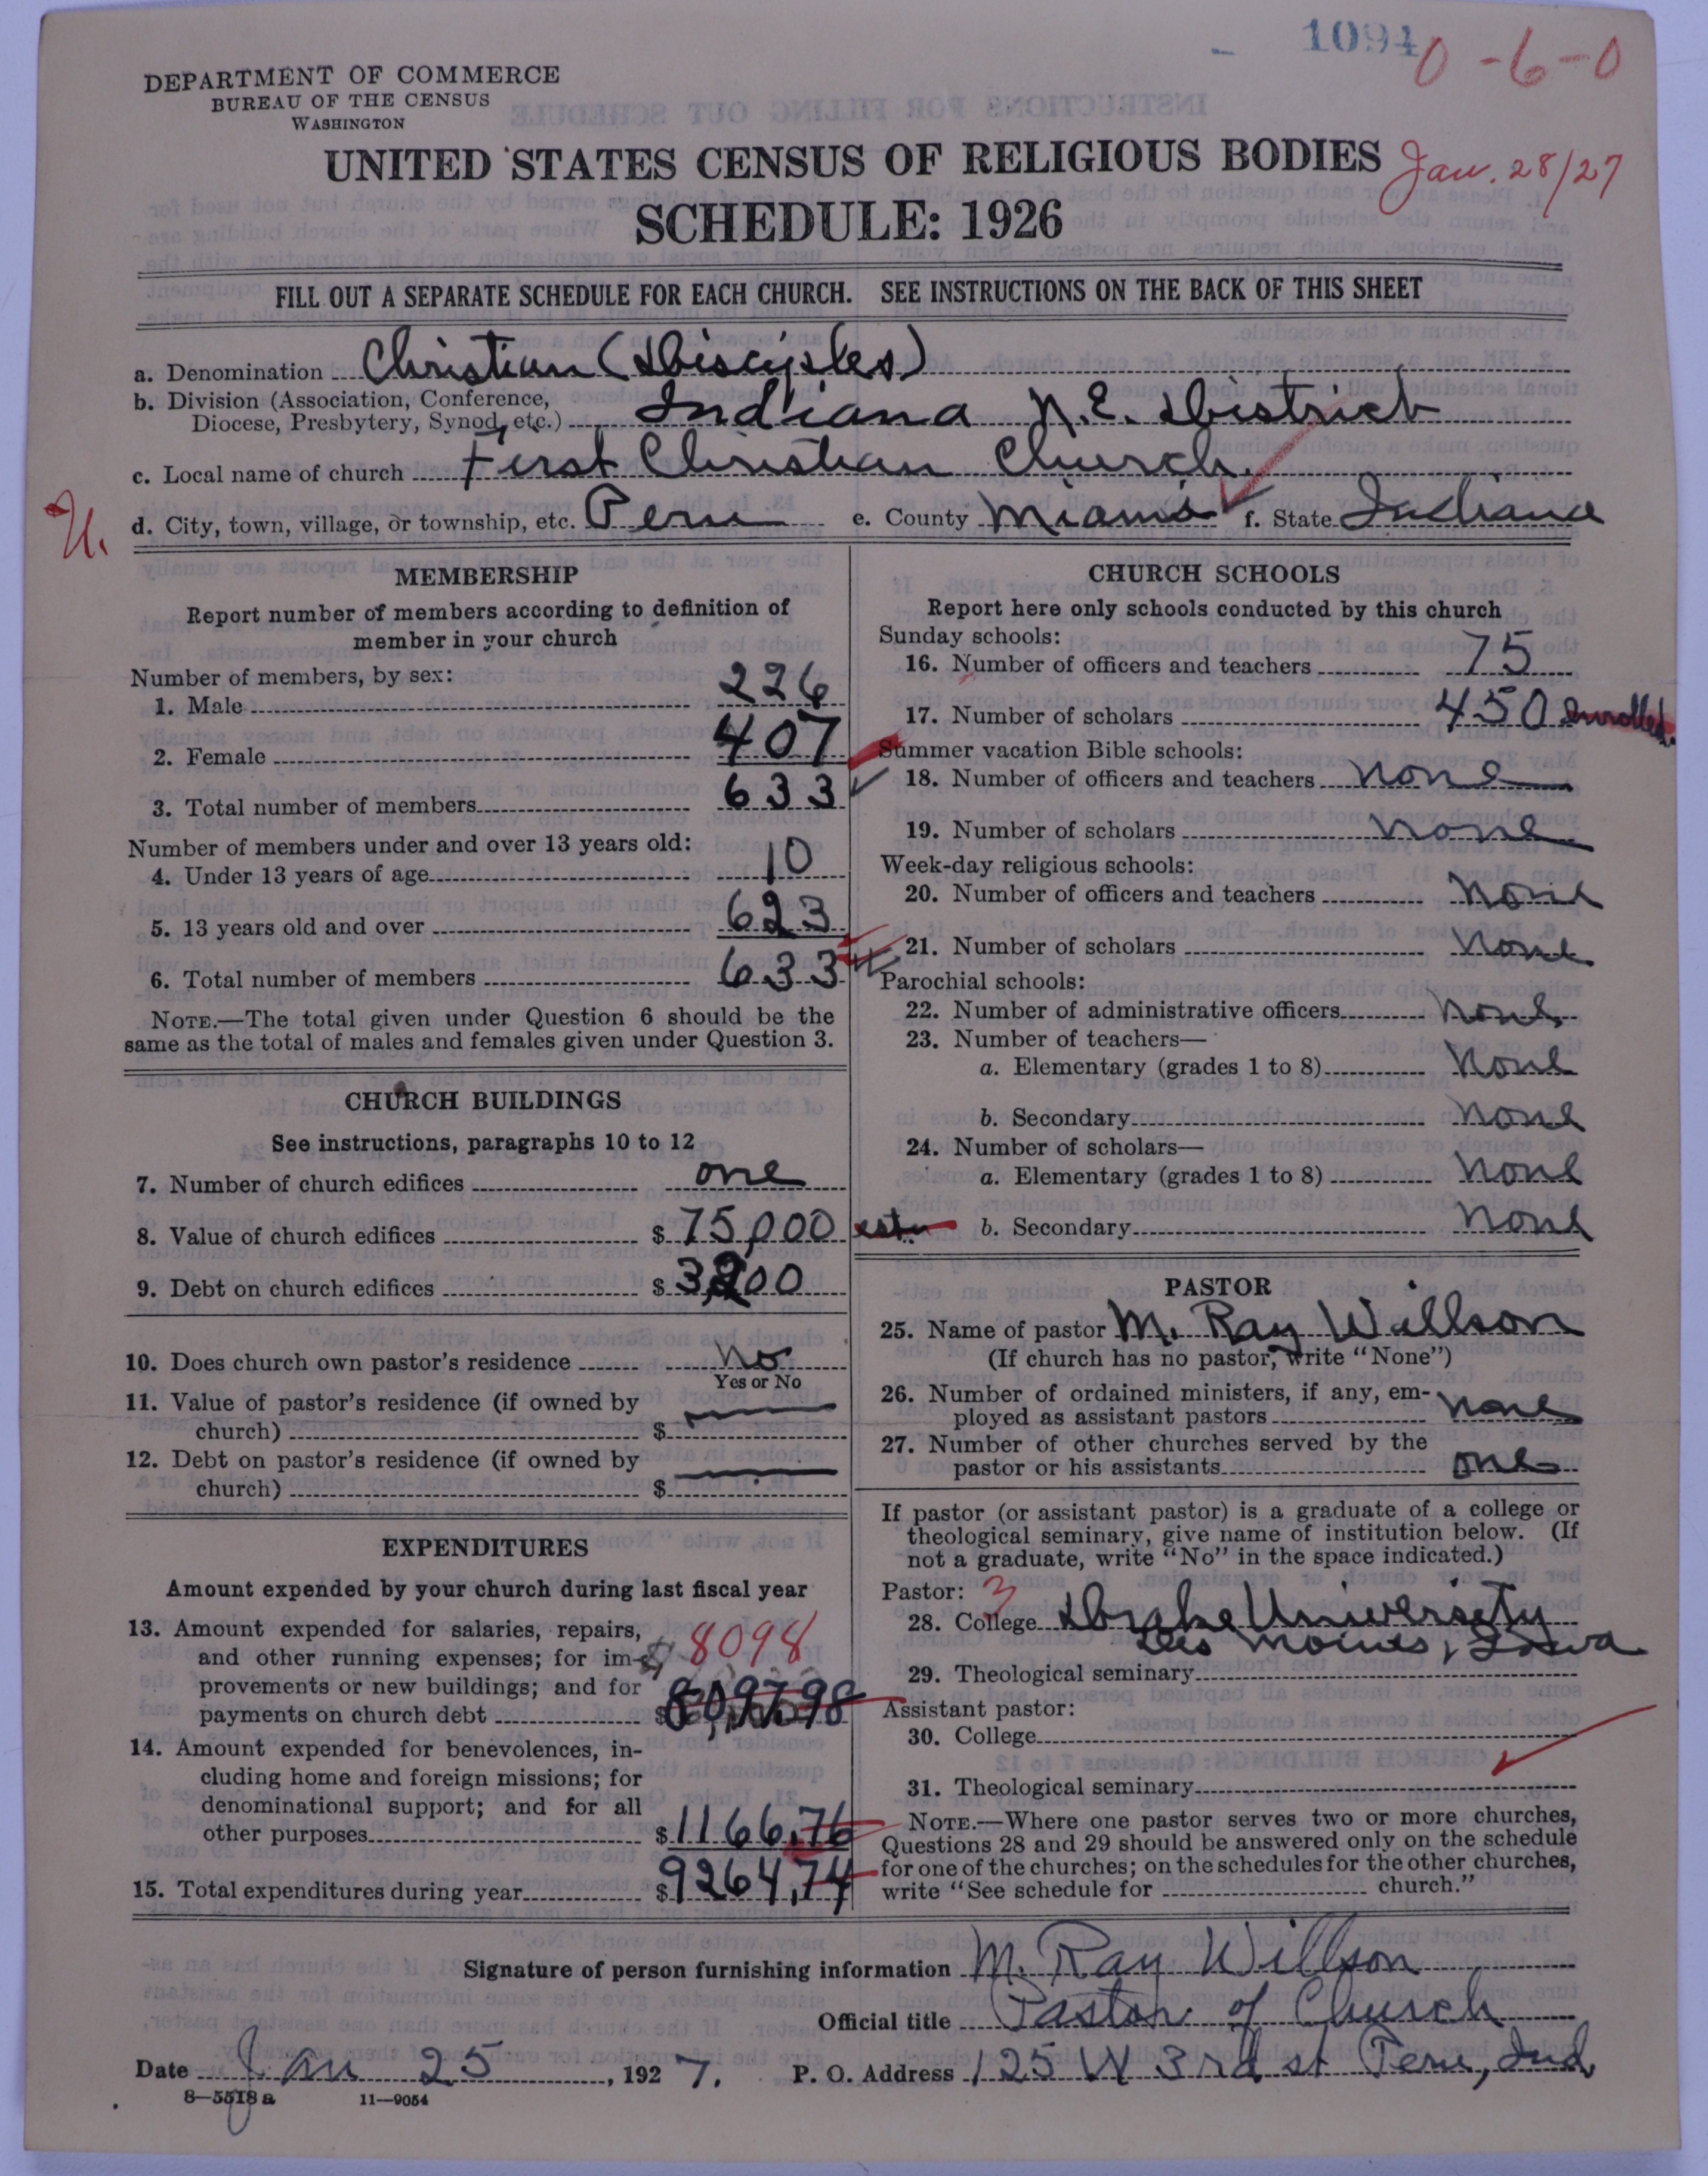 1094 0-6-0
DEPARTMENT OF COMMERCE
BUREAU OF THE CENSUS
WASHINGTON
UNITED STATES CENSUS OF RELIGIOUS BODIES
Jan. 28/27
SCHEDULE: 1926
FILL OUT A SEPARATE SCHEDULE FOR EACH CHURCH. SEE INSTRUCTIONS ON THE BACK OF THIS SHEET
a. Denomination Christian (Disciples)
b. Division (Association, Conference,
Diocese, Presbytery, Synod, etc.) Indiana N.E. District
c. Local name of church First Christian Church
d. City, town, village, or township, etc. Peru e. County Miami f. State Indiana
U.
MEMBERSHIP
Report number of members according to definition of
member in your church
Number of members, by sex:
1. Male 226
2. Female 407
3. Total number of members 633
Number of members under and over 13 years old:
4. Under 13 years of age 10
5. 13 years old and over 623
6. Total number of members 633
NOTE.—The total given under Question 6 should be the
same as the total of males and females given under Question 3.
CHURCH BUILDINGS
See instructions, paragraphs 10 to 12
7. Number of church edifices one
8. Value of church edifices $75,000 est.
9. Debt on church edifices $
10. Does church own pastor's residence No
Yes or No
11. Value of pastor's residence (if owned by
church) $
12. Debt on pastor's residence (if owned by
church) $
EXPENDITURES
Amount expended by your church during last fiscal year
13. Amount expended for salaries, repairs,
and other running expenses; for im- $8098
provements or new buildings; and for
payments on church debt $8097.98
14. Amount expended for benevolences, in-
cluding home and foreign missions; for
denominational support; and for all
other purposes $1166.76
15. Total expenditures during year $9264.74
CHURCH SCHOOLS
Report here only schools conducted by this church
Sunday schools:
16. Number of officers and teachers 75
17. Number of scholars 450 enrolled
Summer vacation Bible schools:
18. Number of officers and teachers none
19. Number of scholars none
Week-day religious schools:
20. Number of officers and teachers none
21. Number of scholars none
Parochial schools:
22. Number of administrative officers none
23. Number of teachers—
a. Elementary (grades 1 to 8) none
b. Secondary none
24. Number of scholars—
a. Elementary (grades 1 to 8) none
b. Secondary none
PASTOR
25. Name of pastor M. Ray Willson
(If church has no pastor, write "None")
26. Number of ordained ministers, if any, em-
ployed as assistant pastors none
27. Number of other churches served by the
pastor or his assistants one
If pastor (or assistant pastor) is a graduate of a college or
theological seminary, give name of institution below. (If
not a graduate, write "No" in the space indicated.)
Pastor: 3
28. College Drake University
Des Moines, Iowa
29. Theological seminary
Assistant pastor:
30. College
31. Theological seminary
NOTE.—Where one pastor serves two or more churches,
Questions 28 and 29 should be answered only on the schedule
for one of the churches; on the schedules for the other churches,
write "See schedule for church."
Signature of person furnishing information M. Ray Willson
Official title Pastor of Church
Date Jan 25, 1927. P. O. Address 125 W 3rd st Peru, Ind.
8—5518 a 11—9054